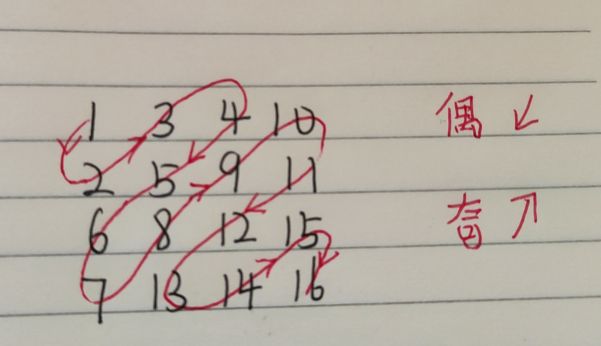 1 3 4 10 偶 ↙
2 5 9 11
6 8 12 15 奇 ↗
7 13 14 16